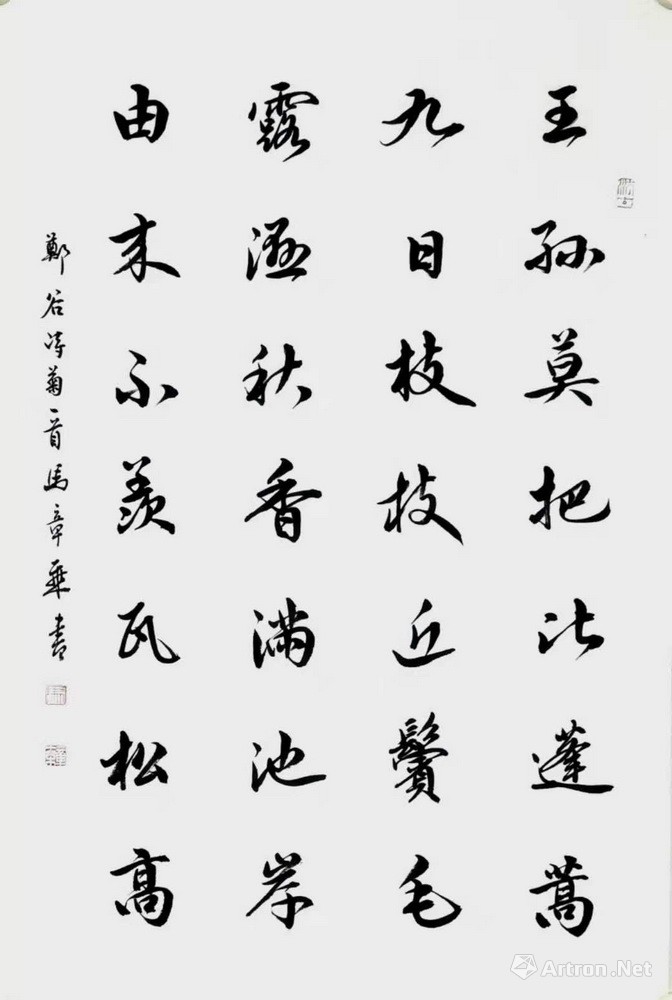 王孫莫把比蓬蒿
九日枝枝近鬢毛
露溼秋香滿池岸
由来不羡瓦松高
鄭谷詩菊一首馬章乘書
Artron.Net